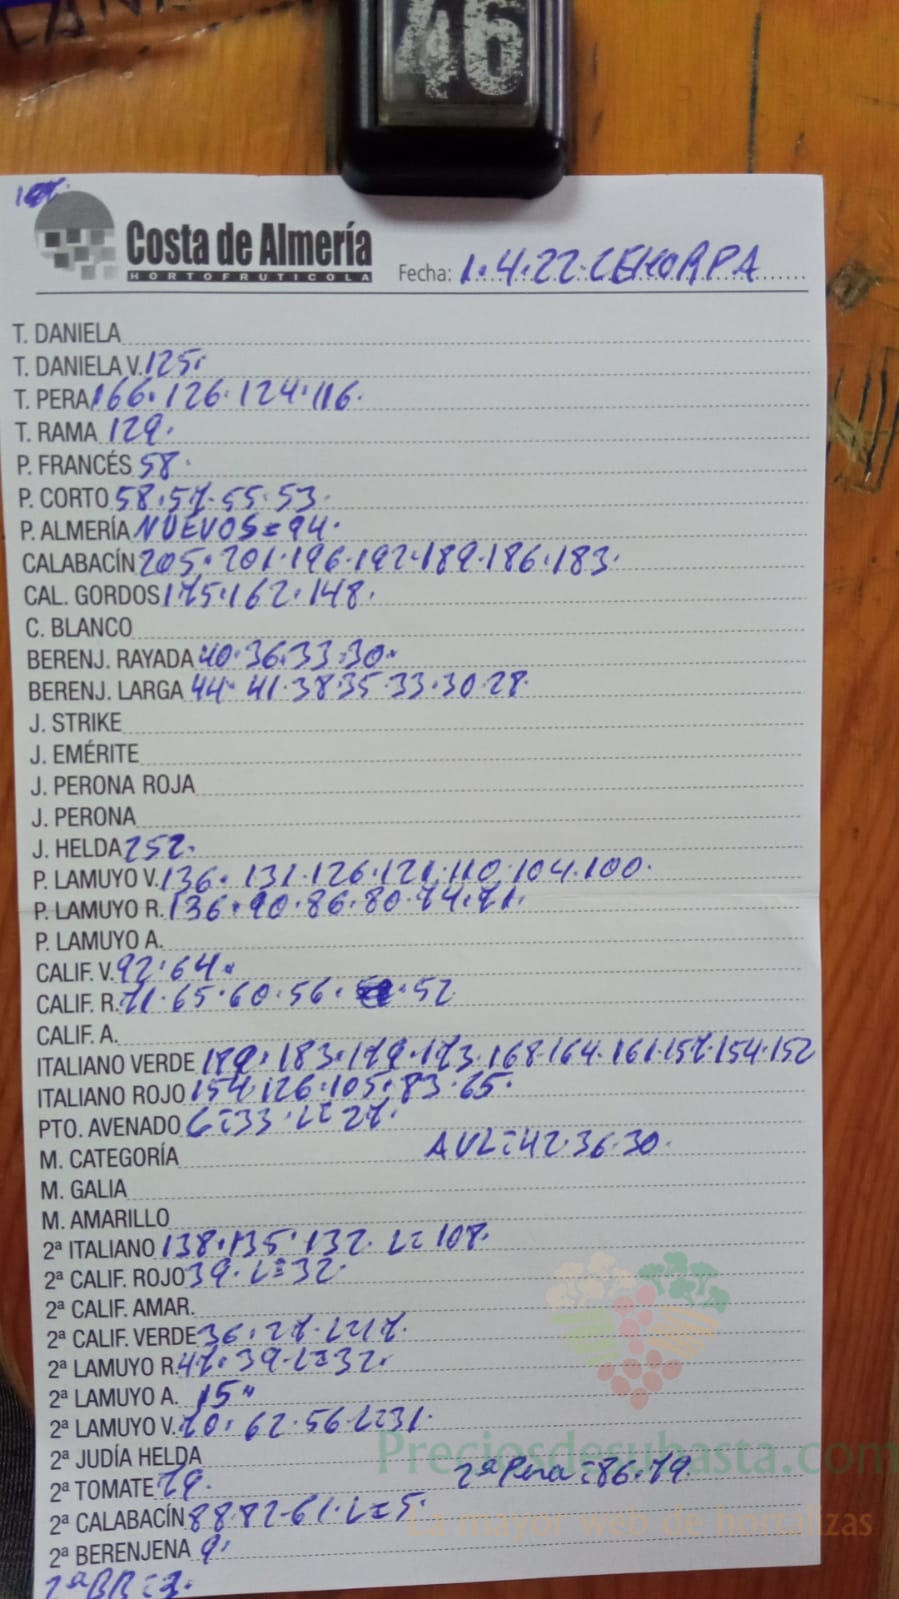 46
Costa de Almería
HORTOFRUTICOLA
Fecha: 1.4.22.CEHORPA
T. DANIELA
T. DANIELA V. 125.
T. PERA 166.126.124.116.
T. RAMA 129.
P. FRANCÉS 58.
P. CORTO 58.57.55.53.
P. ALMERÍA NUEVOS=94.
CALABACÍN 205.201.196.192.189.186.183.
CAL. GORDOS 175.162.148.
C. BLANCO
BERENJ. RAYADA 40.36.33.30.
BERENJ. LARGA 44.41.38.35.33.30.28.
J. STRIKE
J. EMÉRITE
J. PERONA ROJA
J. PERONA
J. HELDA 252.
P. LAMUYO V. 136.131.126.121.110.104.100.
P. LAMUYO R. 136.90.86.80.74.71.
P. LAMUYO A.
CALIF. V. 92.64.
CALIF. R. 71.65.60.56. .52
CALIF. A.
ITALIANO VERDE 183.179.173.168.164.161.157.154.152
ITALIANO ROJO 154.126.105.83.65.
PTO. AVENADO G=33.L=27.
M. CATEGORÍA AVL=42.36.30.
M. GALIA
M. AMARILLO
2ª ITALIANO 138.135.132. L=108.
2ª CALIF. ROJO 39.L=32.
2ª CALIF. AMAR.
2ª CALIF. VERDE 36.27.L=17.
2ª LAMUYO R. 47.39.L=32.
2ª LAMUYO A. 15.
2ª LAMUYO V. 70.62.56.L=31.
2ª JUDÍA HELDA
2ª TOMATE 79. 2ª Pera=86.79.
2ª CALABACÍN 88.82.61.L=5.
2ª BERENJENA 9.
2ª BR=3.
Preciosdesubasta.com
La mayor web de hortalizas